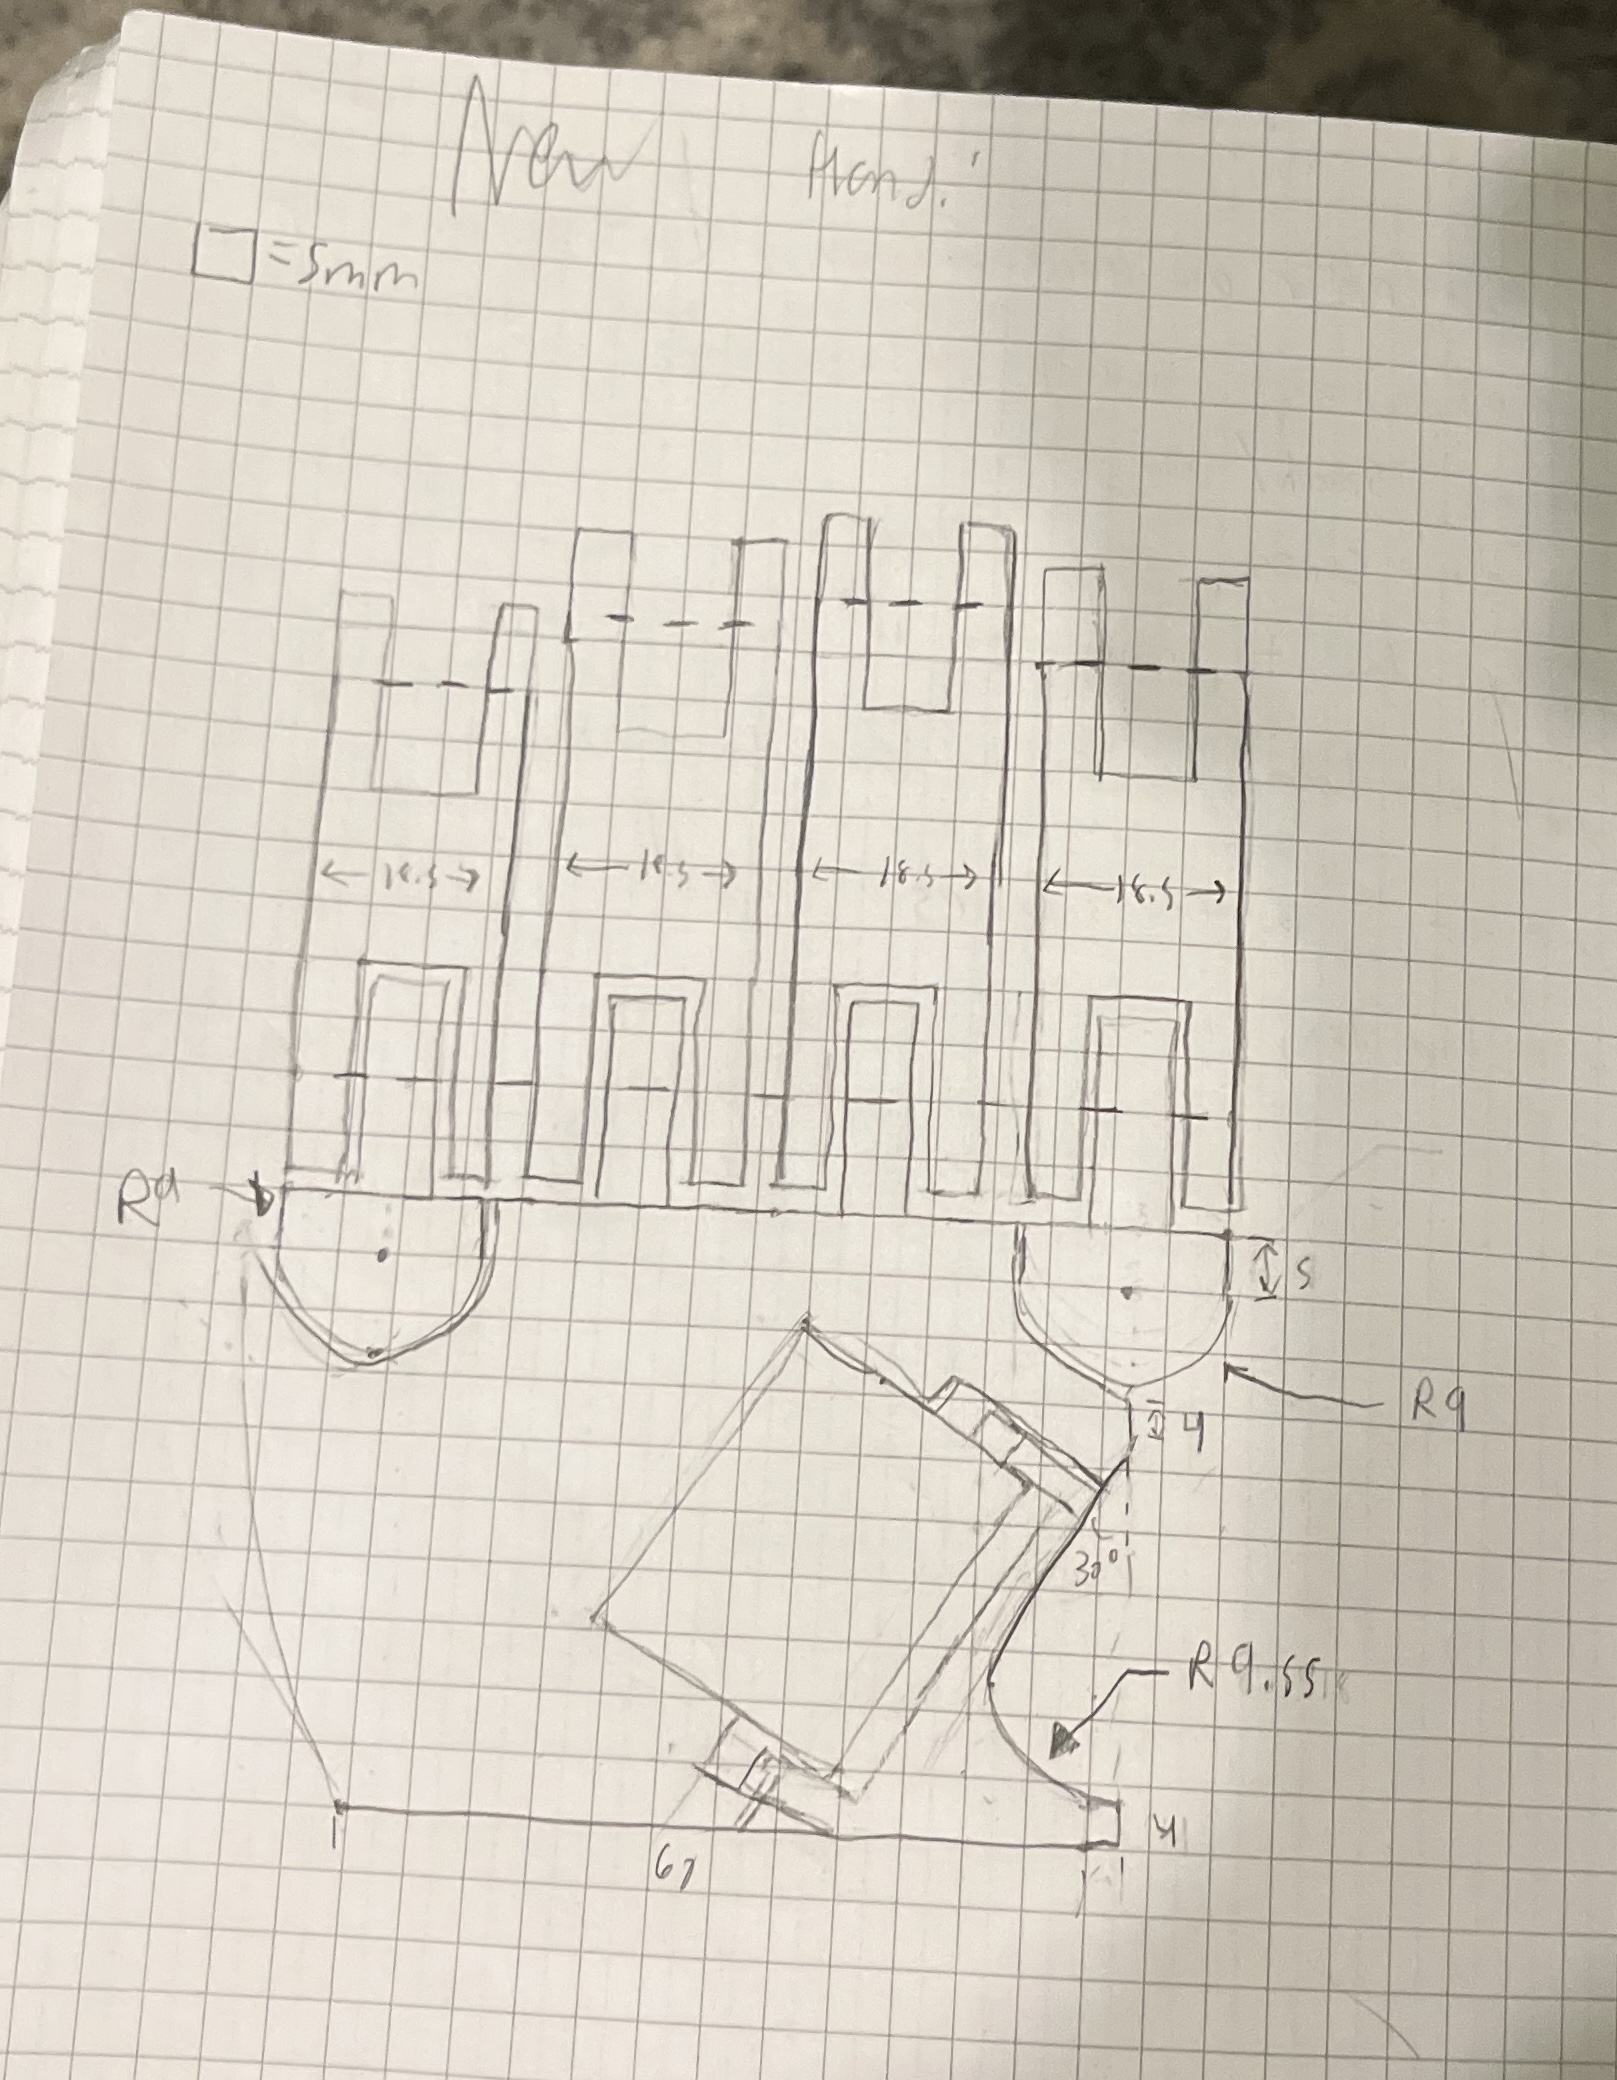 New Hand:
□ = 5mm
18.5 18.5 18.5 18.5
R9
5
R9
4
30°
R9.55
4
67